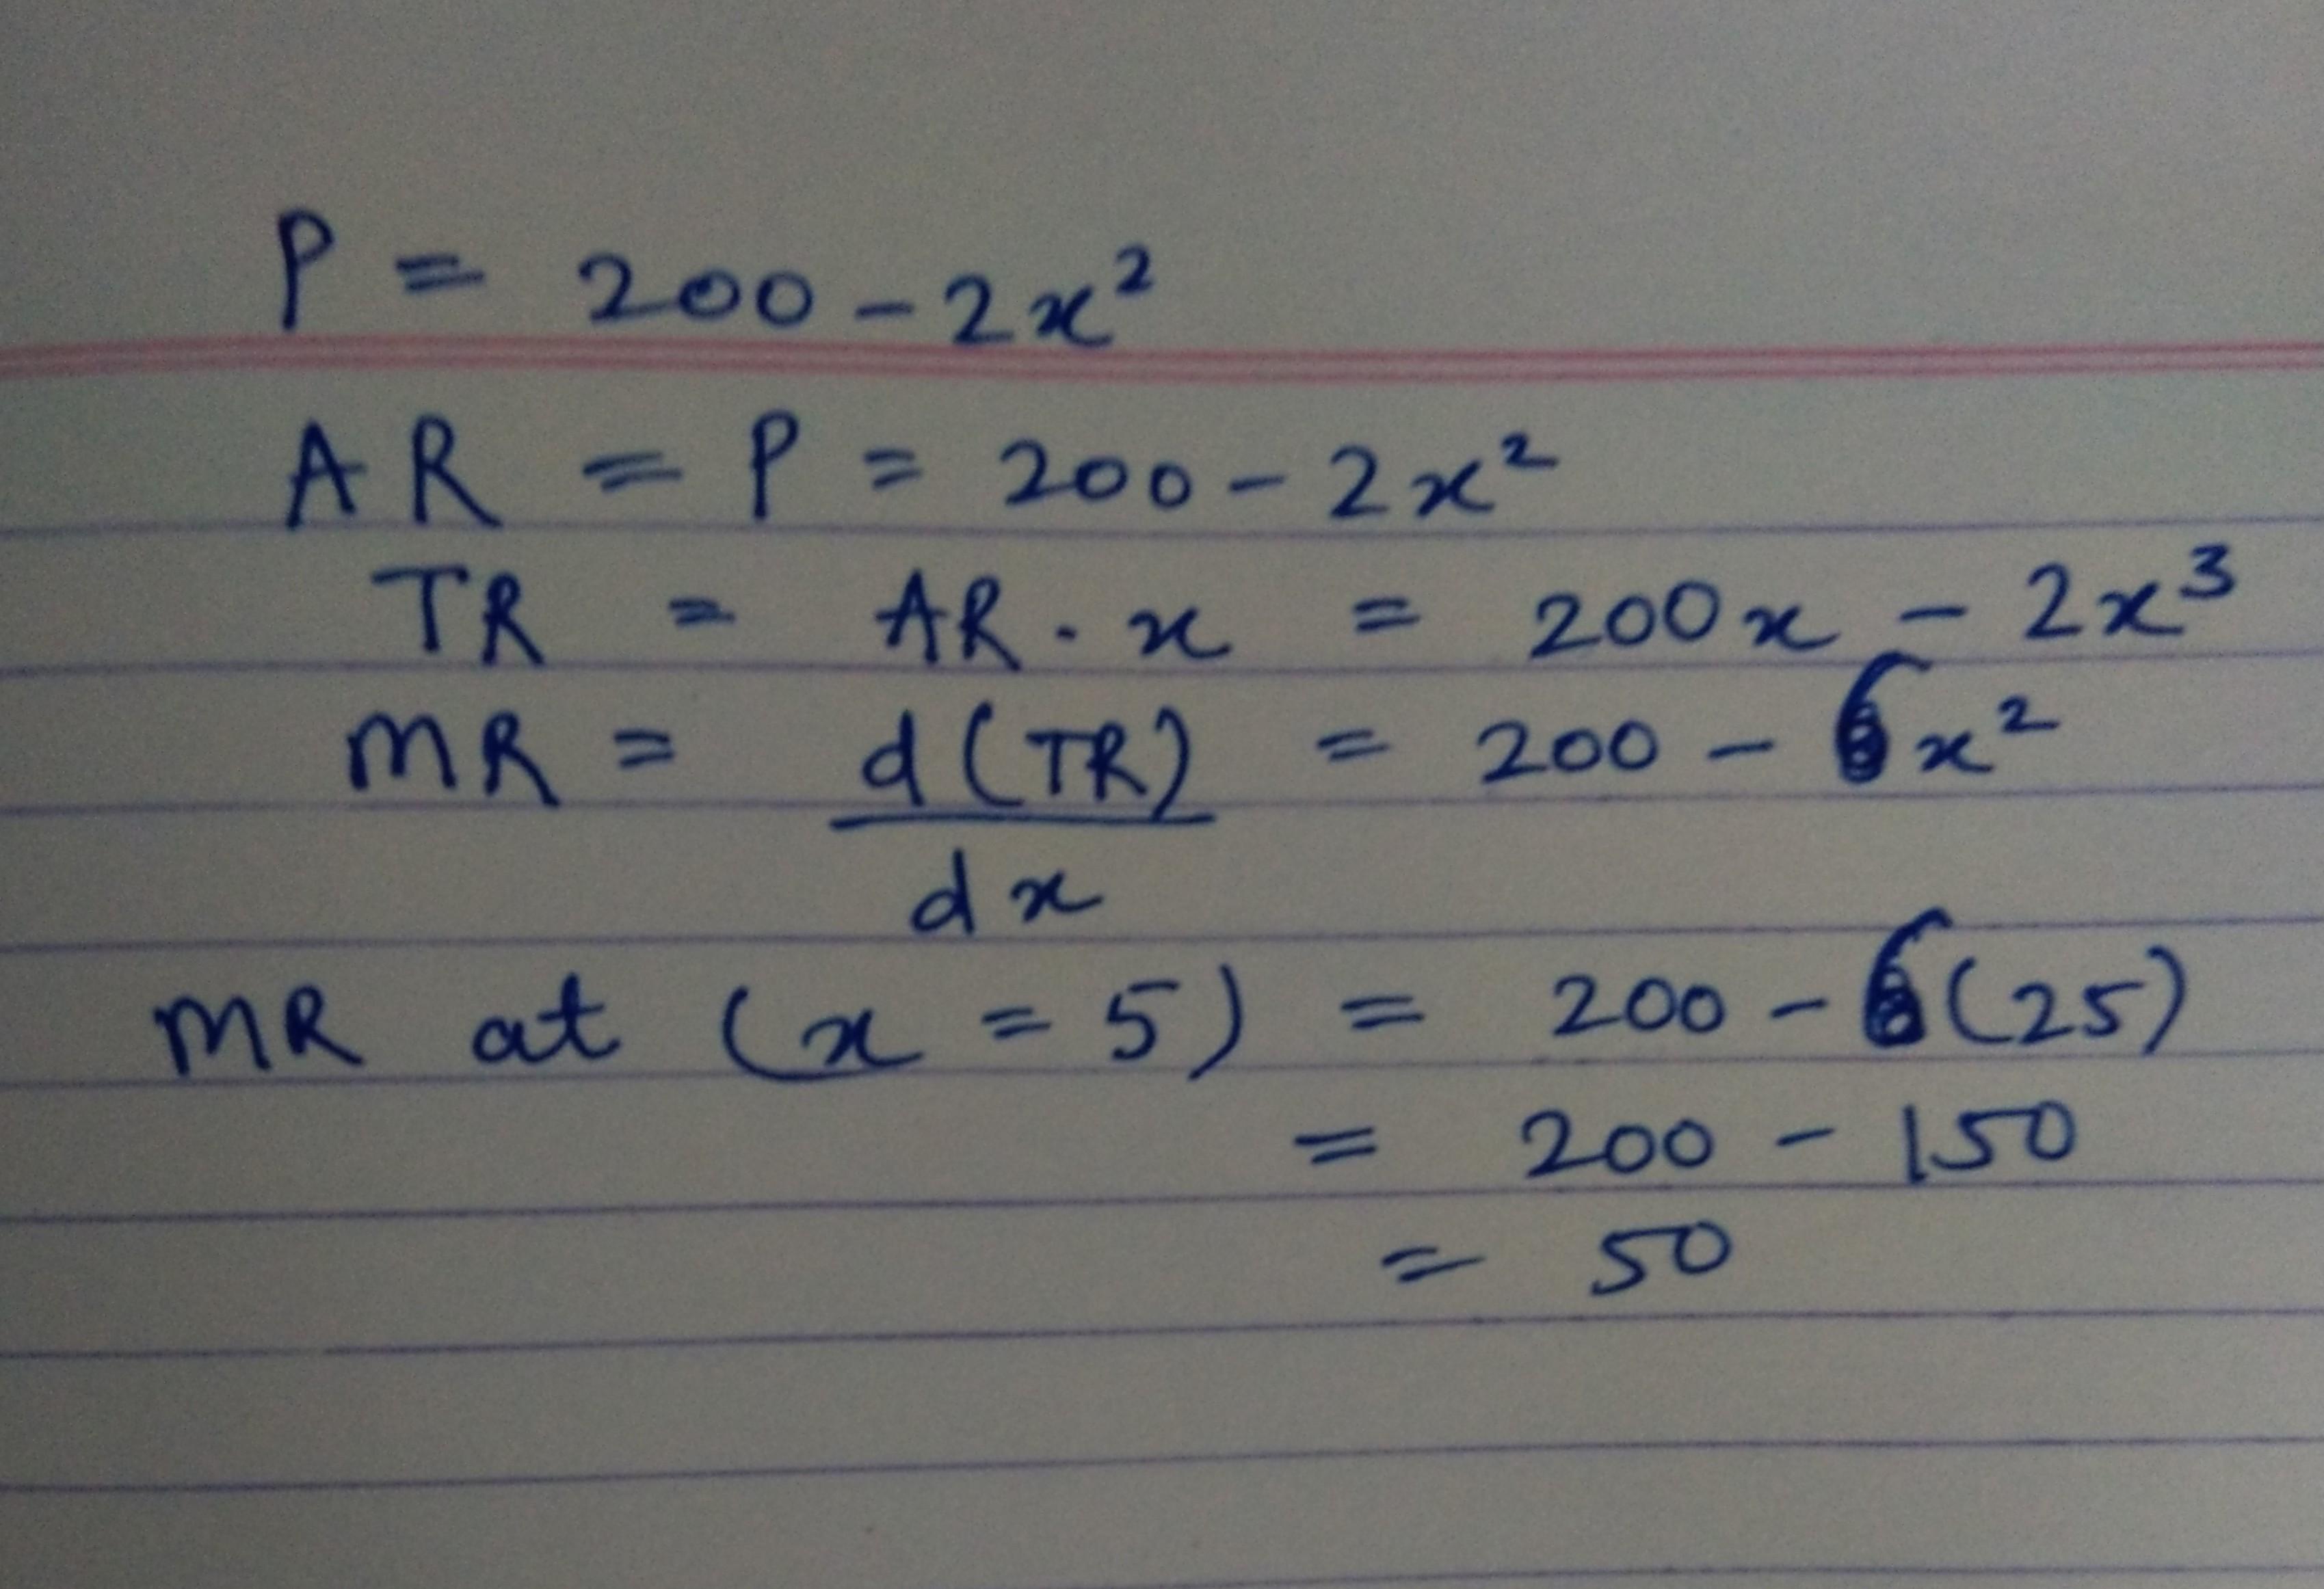 P = 200 - 2x²
AR = P = 200 - 2x²
TR = AR . x = 200x - 2x³
MR = d(TR)/dx = 200 - 6x²
MR at (x = 5) = 200 - 6(25)
= 200 - 150
= 50